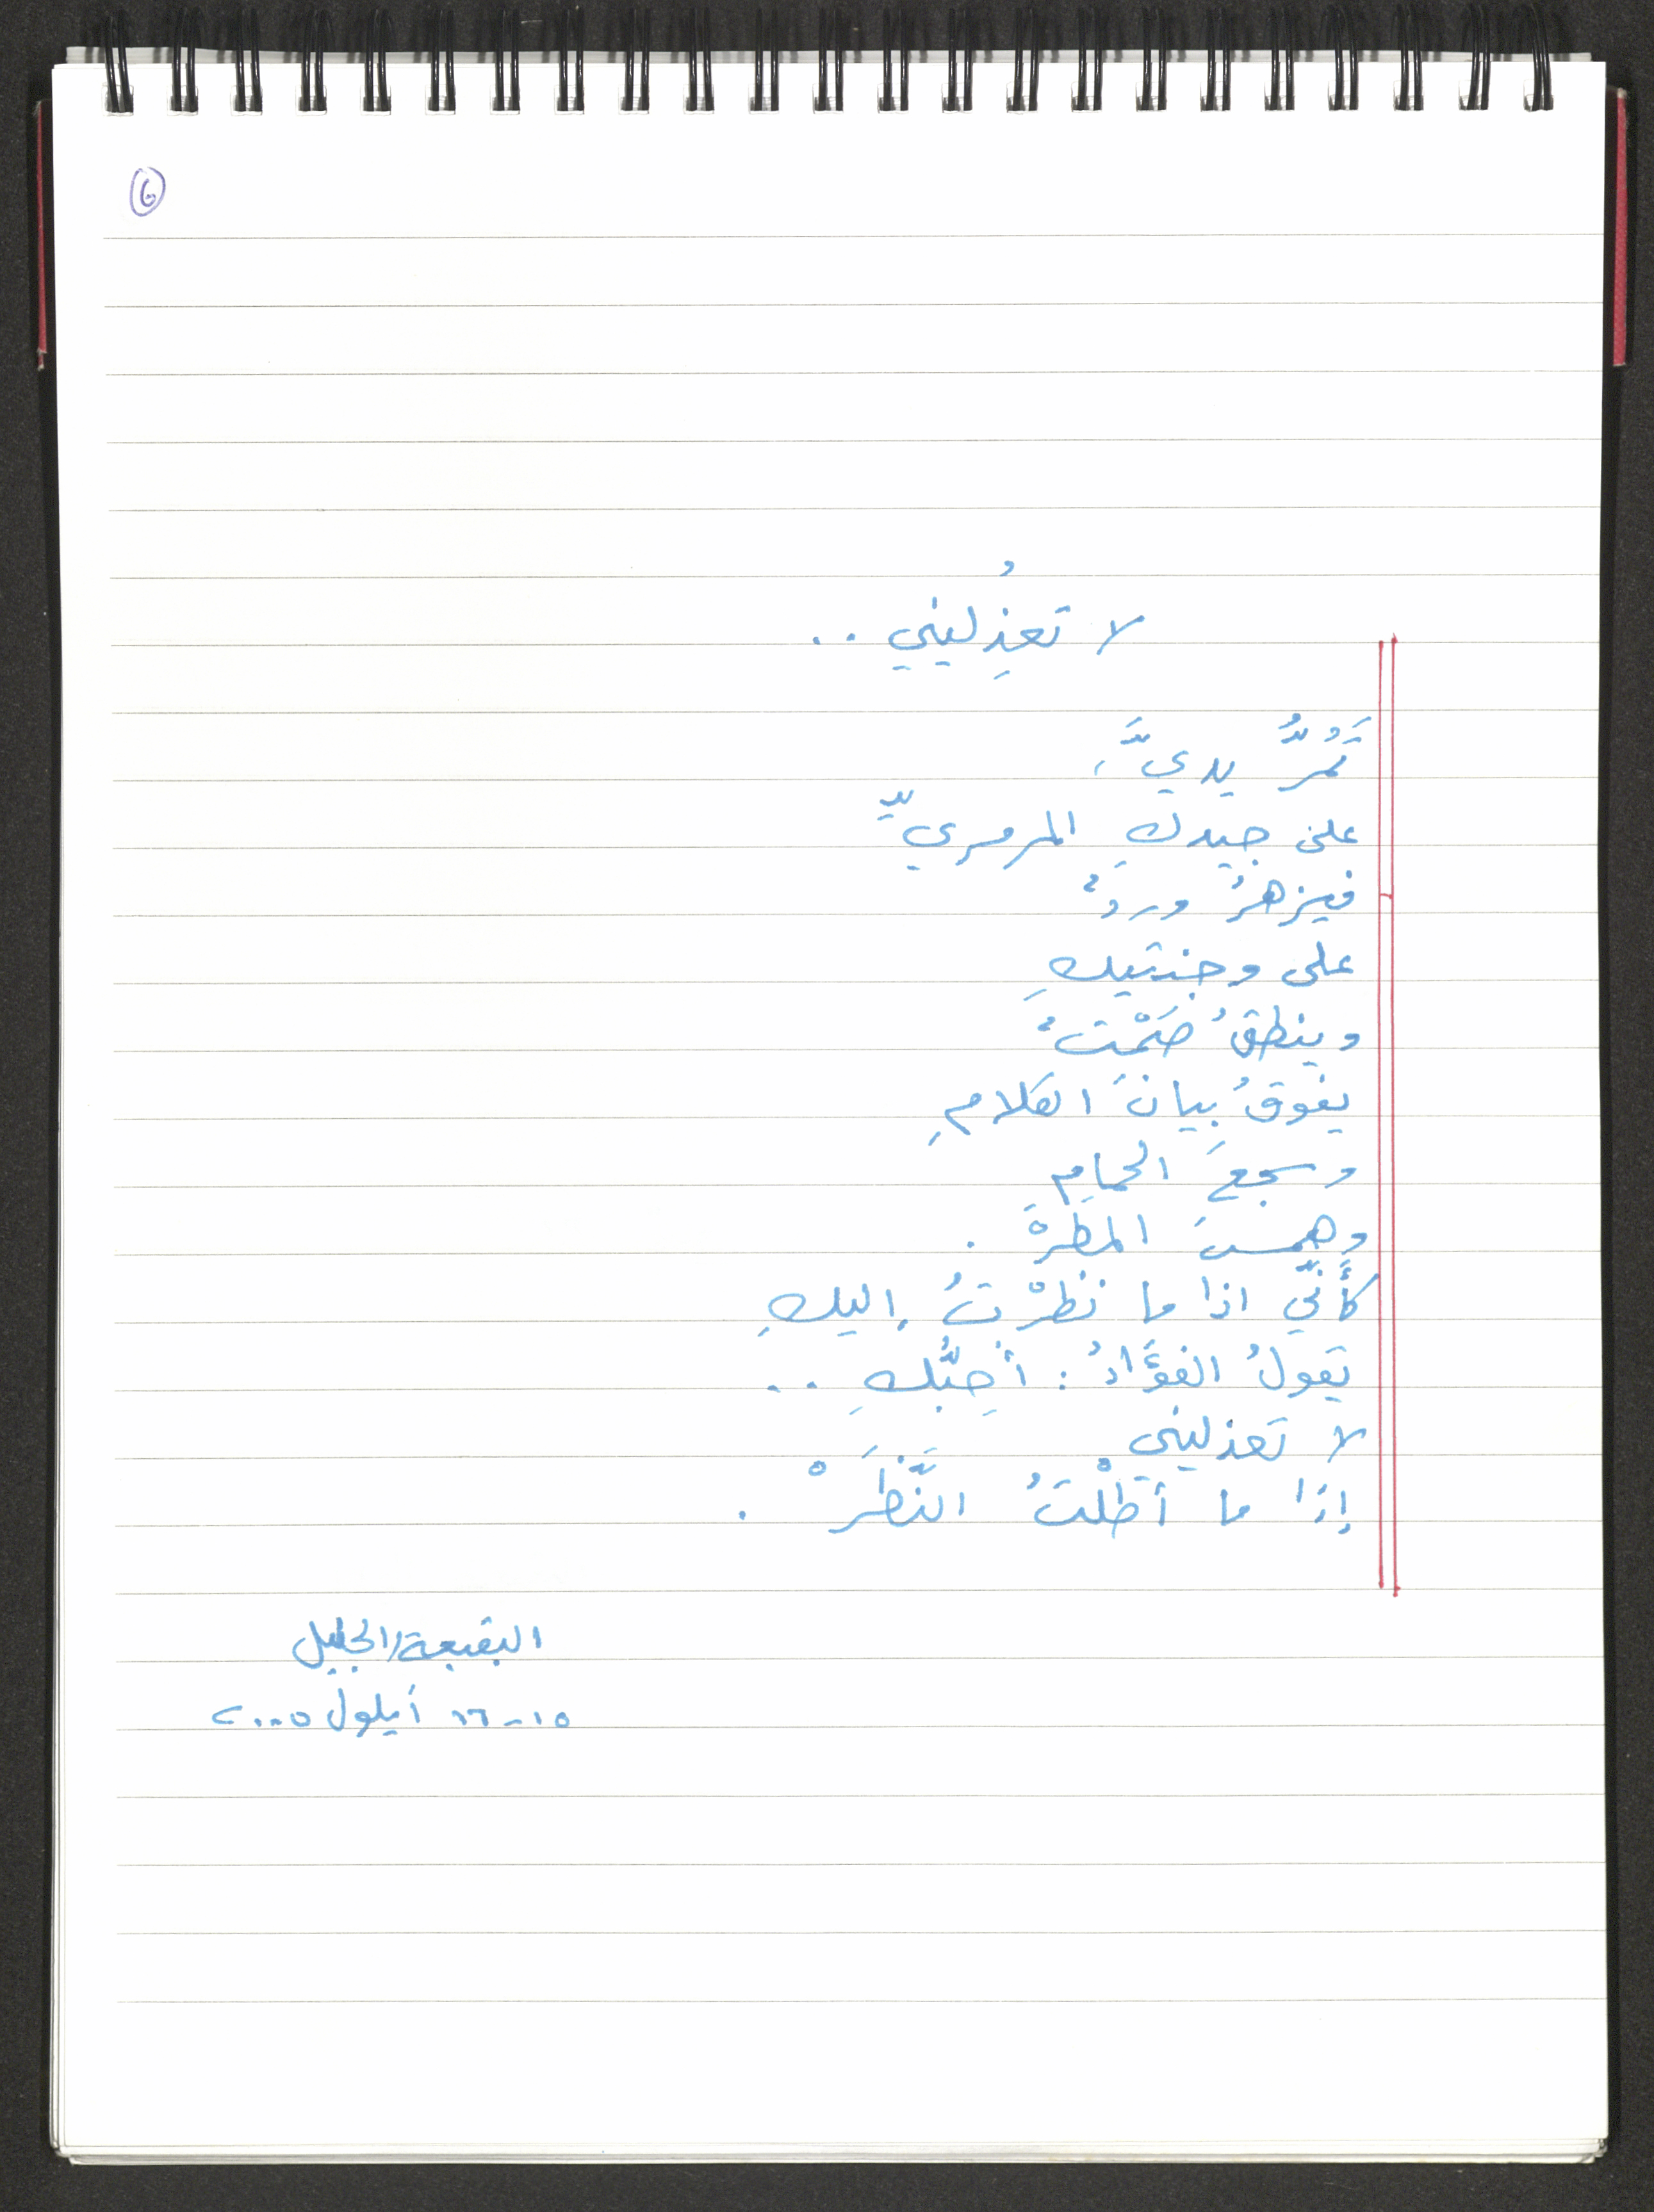 6
لا تعذُِليني ..
تَمُرُّ يديَّ،
على جيدكِ المرمريِّ
فيزهرُ وردٌ
على وجنتيكِ
وينطقُ صَمْتٌ
يفوقُ بيانَ الكلامِ
وسجعَ الحمامِ
وهمسَ المطرْ .
كأَنّي اذا ما نظرْتُ إليكِ
يقولُ الفؤَادُ : أُحِبُّكِ ..
لا تعذليني
إذا ما أَطَلْتُ النَّظَرْ .
البقيعة/الجليل
١٥-١٦ أيلول ٢٠٠٥